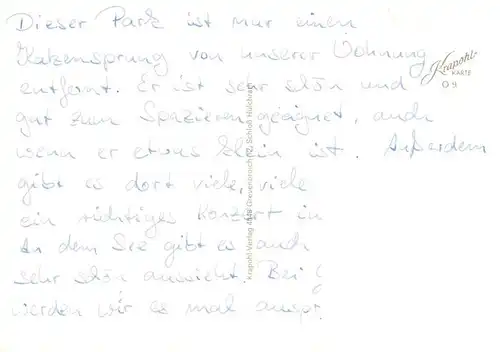 Dieser Park ist nur einen
Katzensprung von unserer Wohnung
entfernt. Er ist sehr schön und
gut zum Spazieren geeignet, auch
wenn er etwas klein ist. Außerdem
gibt es dort viele, viele
ein richtiges Konzert in
An dem See gibt es auch
sehr schön aussieht. Bei
werden wir es mal auspr
Krapohl-Verlag 4048 Grevenbroich 12, Schloß Hülchrath
Krapohl
KARTE